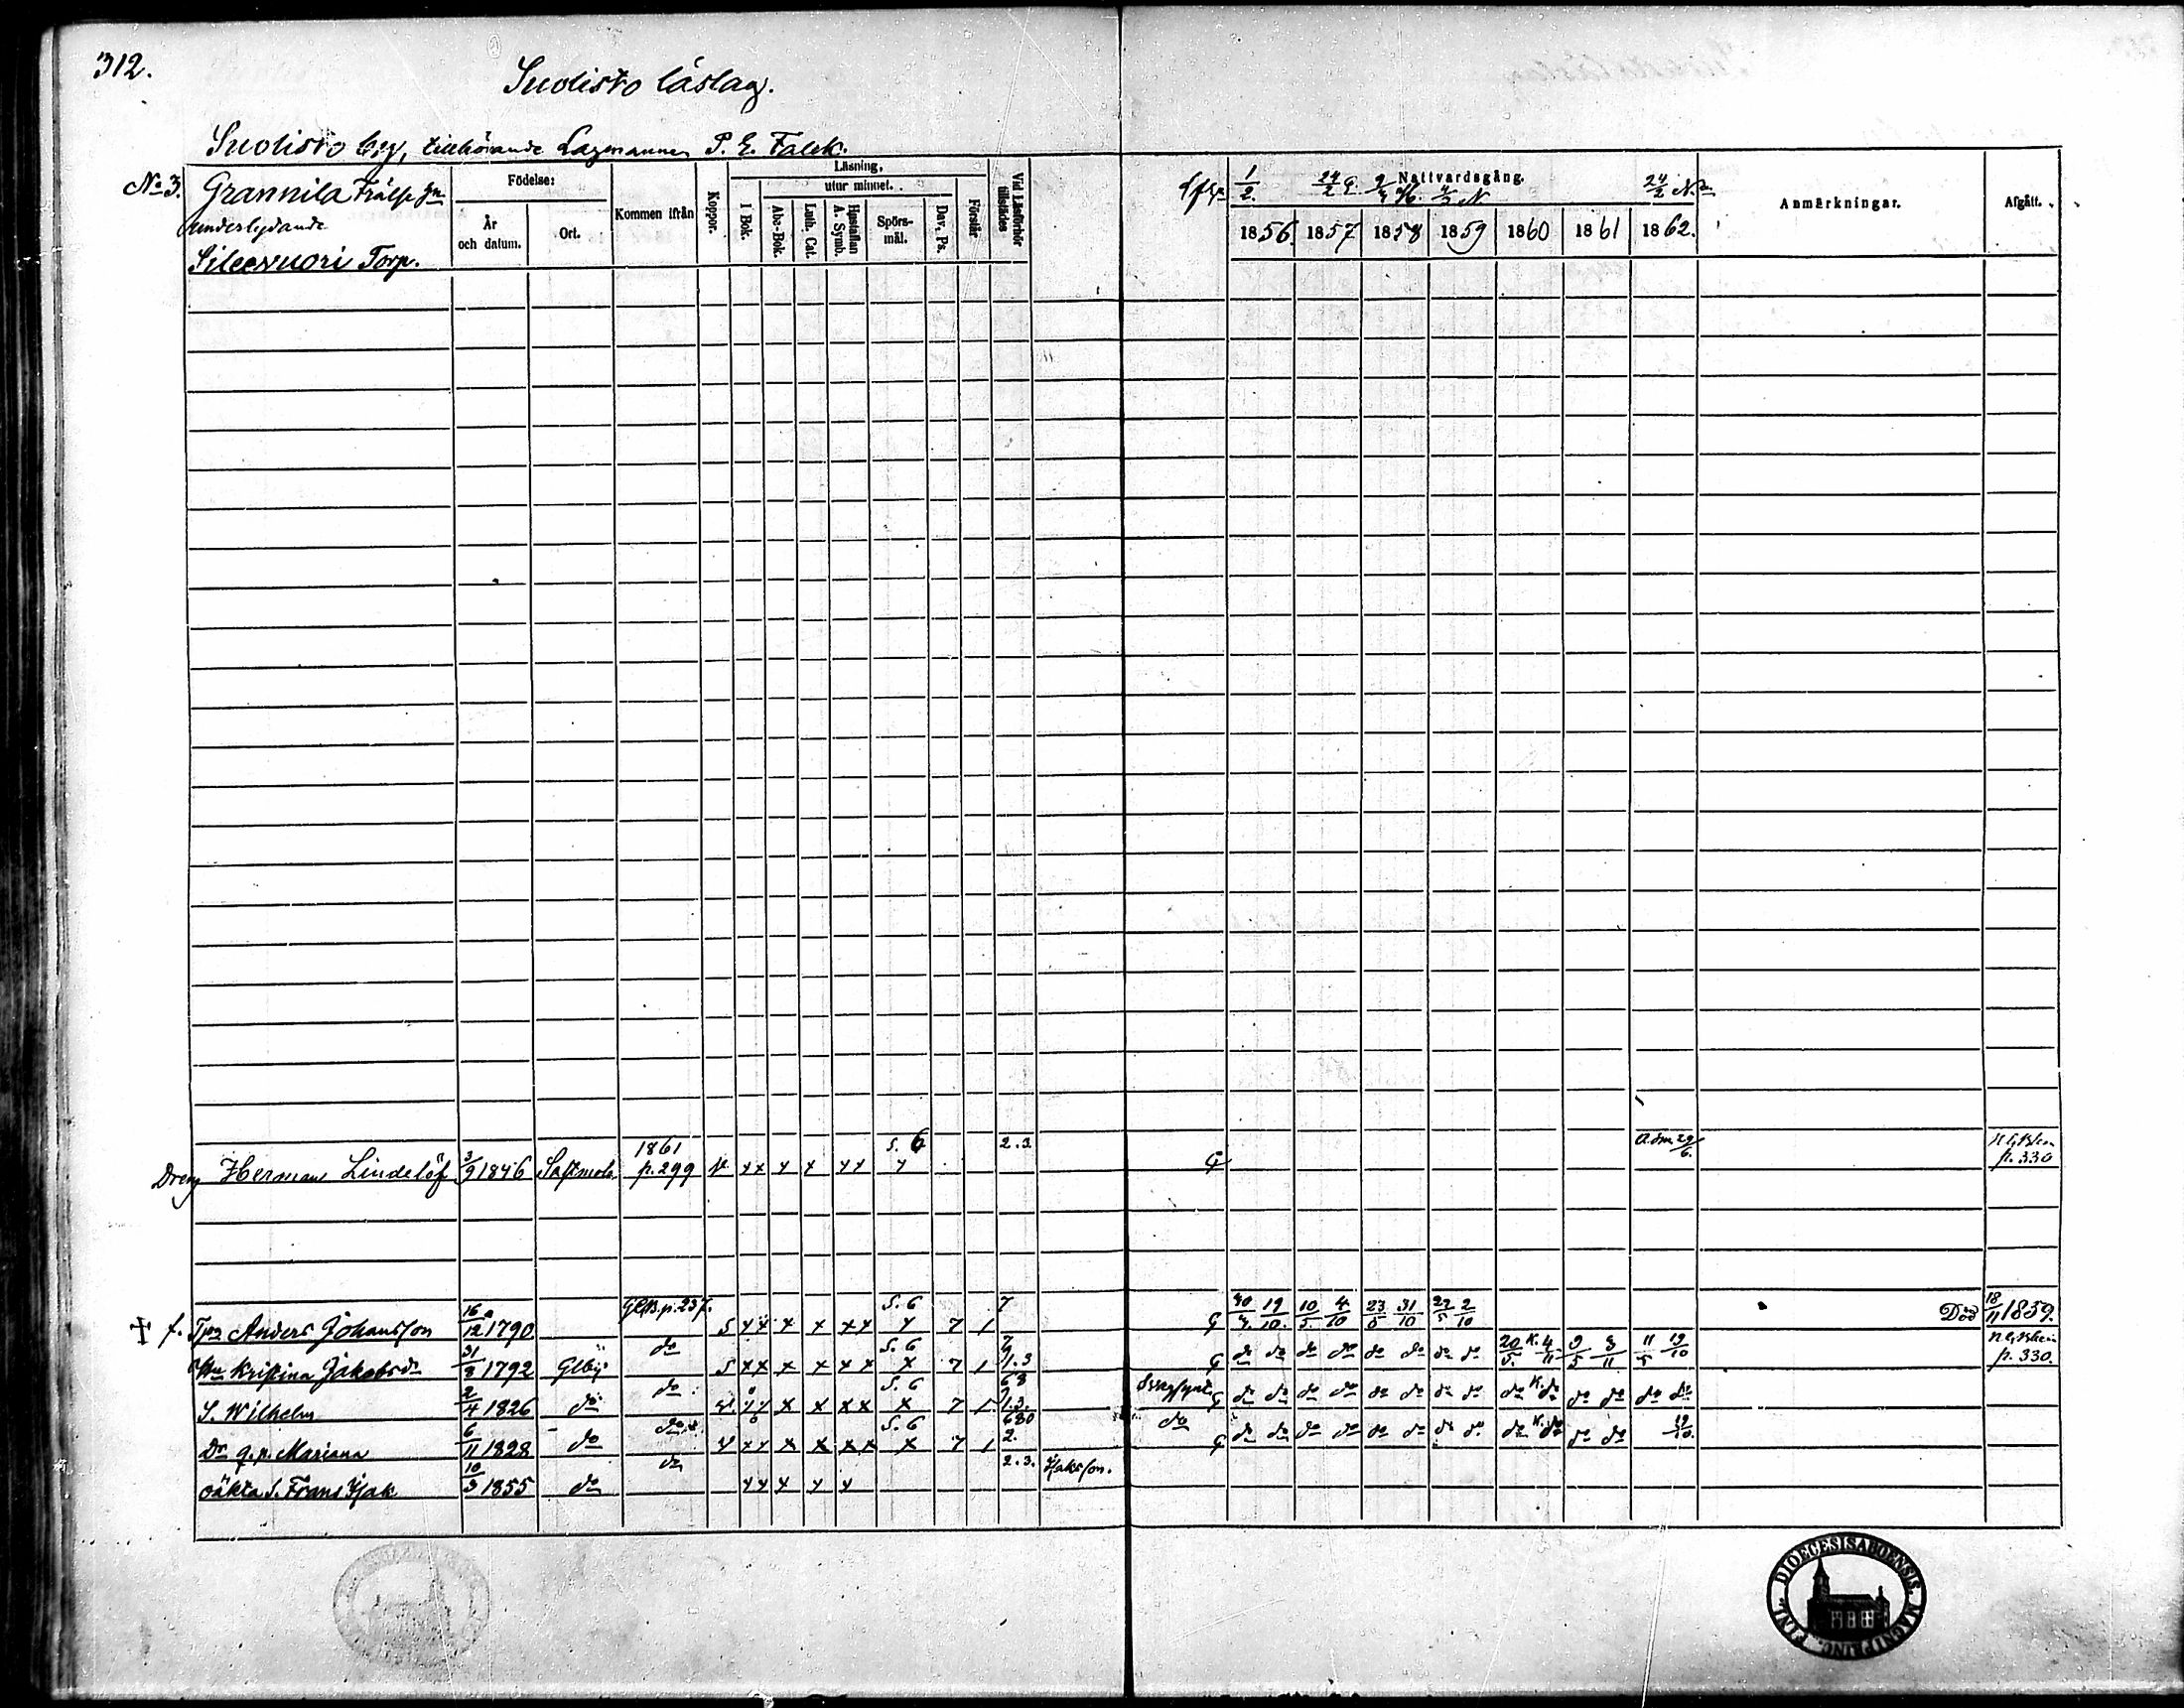 312.
Suolisto läslag.
Suolisto by, tillhörande Lagmannen P. E. Falck.
No 3. Grannila Frälse
underlydande
Torp.
Födelse:
År och datum.
Ort.
Kommen ifrån
Koppor.
Läsning,
utur minnet.
I Bok.
Abc-Bok.
Luth. Cat.
Hustaflan A. Symb.
Spörs-mål.
Dav. Ps.
Förstår
Vid Läsförhör tillstädes
Nattvardsgång.
1/2. 24/2 24/2
1856. 1857 1858 1859 1860 1861 1862.
Anmärkningar.
Afgått.
Dreng Herman Lindelöf 3/9 1846 1861 p. 299 xx x x xx S. 6 2.3 G Adm 29/6. p. 330
† f. Anders Johansson 16/12 1790 p. 237. S xx x x xx S. 6 7 1 7 G 30 19/10. 10/5. 4/10 23/5 31/10 22/5 2/10 Död 18/11 1859.
Kristina Jakobsdr 31/8 1792 do S xx x x xx S. 6 x 7 1 G do do do do do do do do 20/5. K. 4/11 9/5 3/11 11/5 19/10 p. 330.
S. Wilhelm 2/4 1826 do do x x xx S. 6 x 7 1 1.3. G do do do do do do do do do K. do do do do do
Dr q.p. Mariana 6/11 1828 do do xx x x xx S. 6 x 7 1 2. do G do do do do do do do do do K. do do do 19/10.
oäkta S. Frans Isak 10/3 1855 do do xx x x x 2.3. Isaksson.
DIOECESIS ABOENSIS. MAGNI PRINC. FINL.